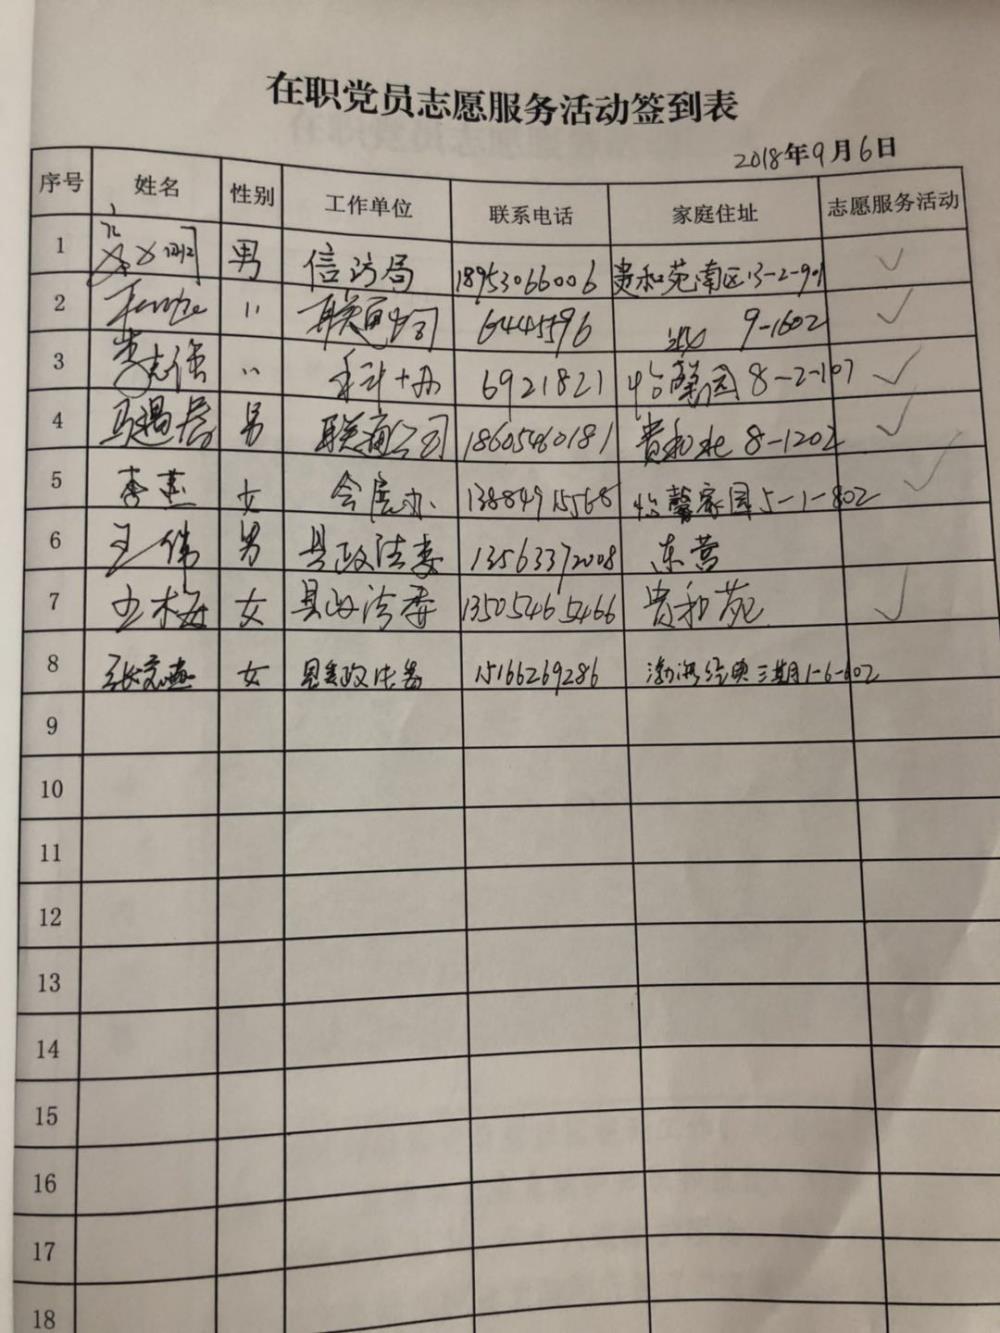 在职党员志愿服务活动签到表
2018年9月6日
序号 姓名 性别 工作单位 联系电话 家庭住址 志愿服务活动
1 男 信访局 18953066006 贵和苑南区13-2-901 ✓
2 〃 联通公司 6445596 9-1602 ✓
3 志强 〃 科 办 6921821 怡馨园 8-2-107 ✓
4 马 男 联通公司 18605460181 贵和北 8-1202 ✓
5 李燕 女 会展办 13884915568 怡馨家园5-1-802 ✓
6 王伟 男 县政法委 13563372008 东营
7 王梅 女 县政法委 13505465466 贵和苑 ✓
8 张 燕 女 县委政法委 15166269286 渤海经典三期1-6-602
9
10
11
12
13
14
15
16
17
18